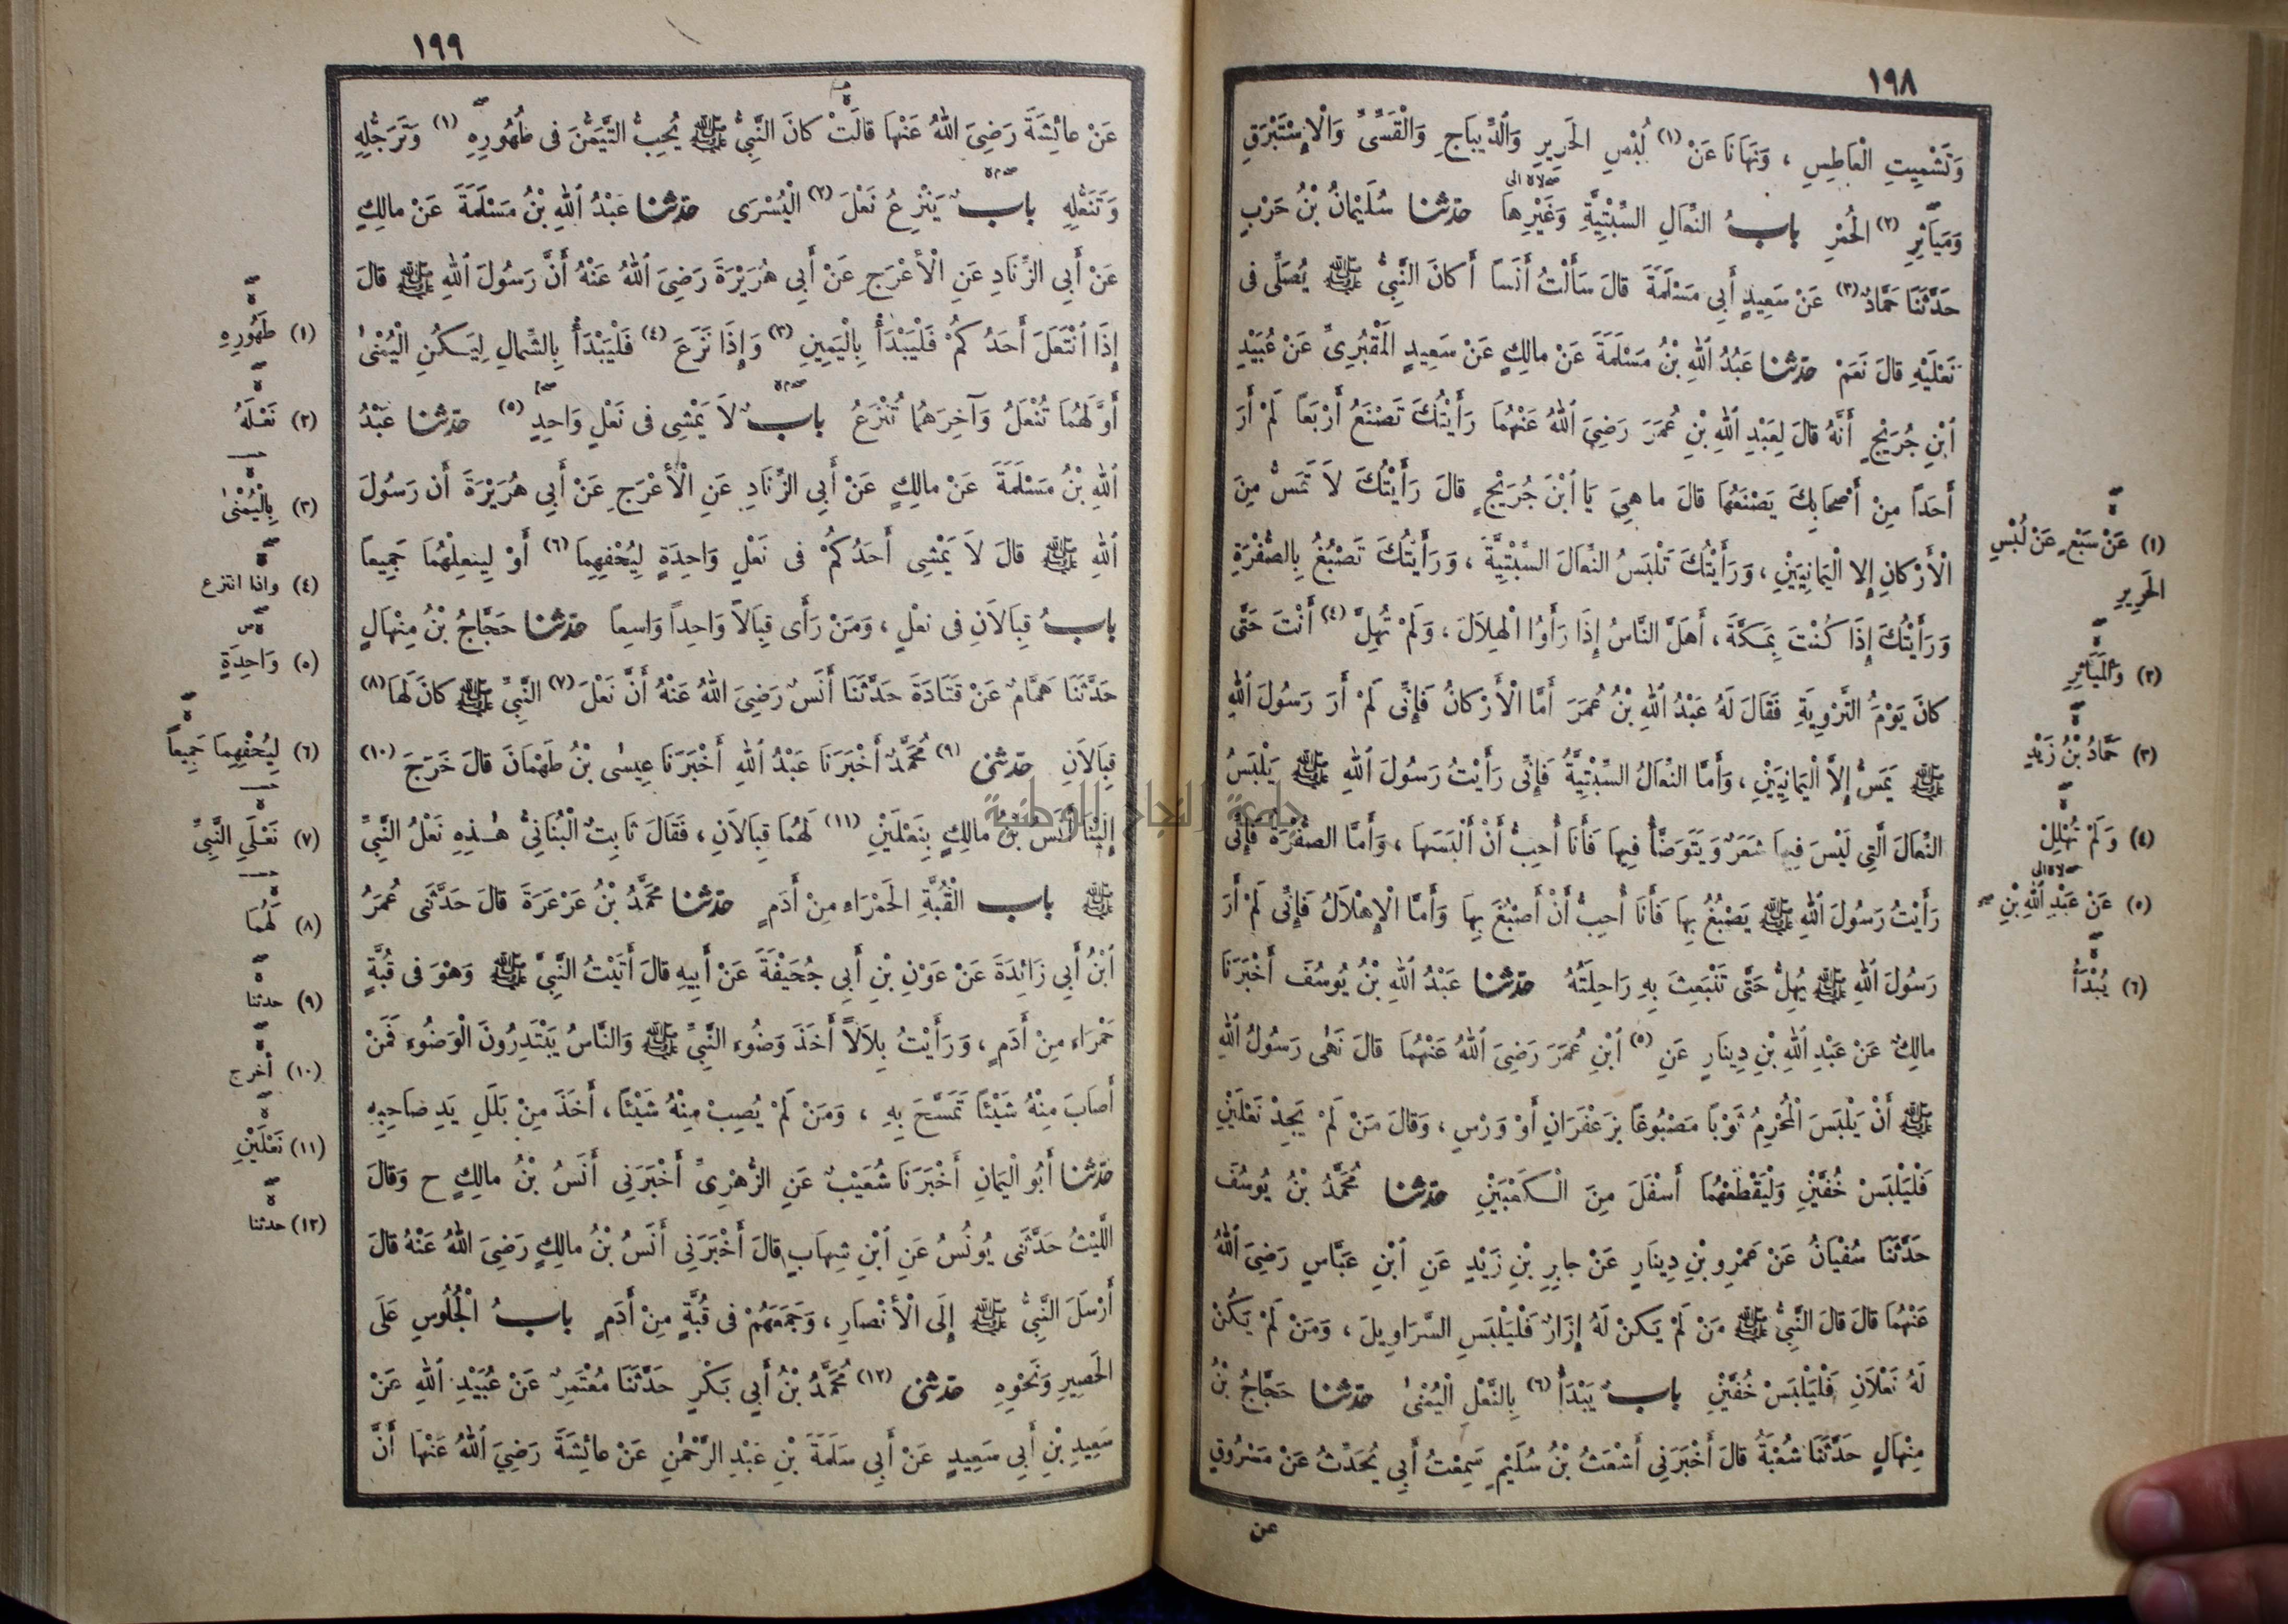 ١٩٨
وَتَشْمِيتِ الْعَاطِسِ ، وَنَهَانَا عَنْ (١) لُبْسِ الحَرِيرِ وَالدِّيبَاجِ وَالْقَسِّيِّ وَالْإِسْتَبْرَقِ
وَمَيَاثِرِ (٢) الْحُمْرِ بابُ النِّعَالِ السِّبْتِيَّةِ وَغَيْرِهَا حدّثنا سُلَيْمانُ بْنُ حَرْبٍ
حَدَّثَنَا حَمَّادٌ (٣) عَنْ سَعِيدٍ أَبِي مَسْلَمَةَ قالَ سَأَلْتُ أَنَساً أَكانَ النَّبِيُّ ﷺ يُصَلِّى فى
نَعْلَيْهِ قالَ نَعَمْ حدّثنا عَبْدُ اللهِ بْنُ مَسْلَمَةَ عَنْ مالِكٍ عَنْ سَعِيدٍ الْمَقْبُرِىِّ عَنْ عُبَيْدِ
ابْنِ جُرَيْجٍ أَنَّهُ قالَ لِعَبْدِ اللهِ بْنِ عُمَرَ رَضِىَ اللهُ عَنْهُمَا رَأَيْتُكَ تَصْنَعُ أَرْبَعاً لَمْ أَرَ
أَحَداً مِنْ أَصْحَابِكَ يَصْنَعُهَا قالَ ما هِيَ يَا ابْنَ جُرَيْجٍ قالَ رَأَيْتُكَ لاَ تَمَسُّ مِنَ
الْأَرْكانِ إِلا الْيَمانِيَيْنِ ، وَرَأَيْتُكَ تَلْبَسُ النِّعَالَ السِّبْتِيَّةَ ، وَرَأَيْتُكَ تَصْبُغُ بِالصُّفْرَةِ
وَرَأَيْتُكَ إِذَا كُنْتَ بِمَكَّةَ ، أَهَلَّ النَّاسُ إِذَا رَأَوُا الْهِلاَلَ ، وَلَمْ تُهِلَّ (٤) أَنْتَ حَتَّى
كانَ يَوْمُ التَّرْوِيَةِ فَقَالَ لَهُ عَبْدُ اللهِ بْنُ عُمَرَ أَمَّا الْأَرْكانُ فَإِنِّى لَمْ أَرَ رَسُولَ اللهِ
ﷺ يَمَسُّ إِلاَّ الْيَمانِيَيْنِ ، وَأَمَّا النِّعَالُ السِّبْتِيَّةُ فَإِنِّى رَأَيْتُ رَسُولَ اللهِ ﷺ يَلْبَسُ
النِّعَالَ الَّتِى لَيْسَ فِيهَا شَعَرٌ وَيَتَوَضَّأُ فِيهَا فَأَنَا أُحِبُّ أَنْ أَلْبَسَهَا ، وَأَمَّا الصُّفْرَةُ فَإِنِّى
رَأَيْتُ رَسُولَ اللهِ ﷺ يَصْبُغُ بِهَا فَأَنَا أُحِبُّ أَنْ أَصْبُغَ بِهَا وَأَمَّا الْإِهْلاَلُ فَإِنِّى لَمْ أَرَ
رَسُولَ اللهِ ﷺ يُهِلُّ حَتَّى تَنْبَعِثَ بِهِ رَاحِلَتُهُ حدّثنا عَبْدُ اللهِ بْنُ يُوسُفَ أَخْبَرَنَا
مالِكٌ عَنْ عَبْدِ اللهِ بْنِ دِينَارٍ عَنِ (٥) ابْنِ عُمَرَ رَضِىَ اللهُ عَنْهُمَا قالَ نَهَى رَسُولُ اللهِ
ﷺ أَنْ يَلْبَسَ الْمُحْرِمُ ثَوْبًا مَصْبُوغًا بِزَعْفَرَانٍ أَوْ وَرْسٍ ، وَقالَ مَنْ لَمْ يَجِدْ نَعْلَيْنِ
فَلْيَلْبَسْ خُفَّيْنِ وَلْيَقْطَعْهُمَا أَسْفَلَ مِنَ الْكَعْبَيْنِ حدّثنا مُحَمَّدُ بْنُ يُوسُفَ
حَدَّثَنَا سُفْيَانُ عَنْ عَمْرِو بْنِ دِينَارٍ عَنْ جابِرِ بْنِ زَيْدٍ عَنِ ابْنِ عَبَّاسٍ رَضِىَ اللهُ
عَنْهُمَا قالَ قالَ النَّبِىُّ ﷺ مَنْ لَمْ يَكنْ لَهُ إِزَارٌ فَلْيَلْبَسِ السَّرَاوِيلَ ، وَمَنْ لَمْ يَكُنْ
لَهُ نَعْلاَنِ فَلْيَلْبَسْ خُفَّيْنِ بابٌ يَبْدَأُ (٦) بِالنَّعْلِ الْيُمْنَى حدّثنا حَجَّاجُ بْنُ
مِنْهَالٍ حَدَّثَنَا شُعْبَةُ قالَ أَخْبَرَنِى أَشْعَثُ بْنُ سُلَيْمٍ سَمِعْتُ أَبِي يُحَدِّثُ عَنْ مَسْرُوقٍ
عن
(١) عَنْ سَبْعٍ عَنْ لُبْسِ
الحَرِيرِ
(٢) وَالْمَيَاثِرِ
(٣) حَمَّادُ بْنُ زَيْدٍ
(٤) وَلَمْ تُهْلِلْ
(٥) عَنْ عَبْدِ اللهِ بْنِ
(٦) يُبْدَأُ
١٩٩
عَنْ عائِشَةَ رَضِىَ اللهُ عَنْهَا قالَتْ كانَ النَّبِىُّ ﷺ يُحِبُّ التَّيَمُّنَ فى طُهُورِهِ (١) وَتَرَجُّلِهِ
وَتَنَعُّلِهِ بابٌ يَنْزِعُ نَعْلَ (٢) الْيُسْرَى حدّثنا عَبْدُ اللهِ بْنُ مَسْلَمَةَ عَنْ مالِكٍ
عَنْ أَبِي الزِّنَادِ عَنِ الْأَعْرَجِ عَنْ أَبِي هُرَيْرَةَ رَضِىَ اللهُ عَنْهُ أَنَّ رَسُولَ اللهِ ﷺ قالَ
إِذَا انْتَعَلَ أَحَدُكُمْ فَلْيَبْدَأْ بِالْيَمِينِ (٣) وَإِذَا نَزَعَ (٤) فَلْيَبْدَأْ بِالشِّمالِ لِيَكُنِ الْيُمْنَى
أَوَّلَهُمَا تُنْعَلُ وَآخِرَهُمَا تُنْزَعُ بابٌ لاَ يَمْشِى فى نَعْلٍ وَاحِدٍ (٥) حدّثنا عَبْدُ
اللهِ بْنُ مَسْلَمَةَ عَنْ مالِكٍ عَنْ أَبِي الزِّنَادِ عَنِ الْأَعْرَجِ عَنْ أَبِي هُرَيْرَةَ أَن رَسُولَ
اللهِ ﷺ قالَ لاَ يَمْشِى أَحَدُكُمْ فى نَعْلٍ وَاحِدَةٍ لِيُحْفِهِمَا (٦) أَوْ لِيَنعِلْهُمَا جَمِيعاً
بابُ قِبَالاَنِ فى نعْلٍ ، وَمَنْ رَأَى قِبَالاً وَاحِداً وَاسِعاً حدّثنا حَجَّاجُ بْنُ مِنْهَالٍ
حَدَّثَنَا هَمَّامٌ عَنْ قَتَادَةَ حَدَّثَنَا أَنَسٌ رَضِىَ اللهُ عَنْهُ أَنَّ نَعْلَ (٧) النَّبِىِّ ﷺ كانَ لَهَا (٨)
قِبَالاَنِ حدّثنى (٩) مُحَمَّدٌ أَخْبَرَنَا عَبْدُ اللهِ أَخْبَرَنَا عِيسَى بْنُ طَهْمَانَ قالَ خَرَجَ (١٠)
إِلَيْنَا أَنَسُ بْنُ مالِكٍ بِنَعْلَيْنِ (١١) لَهُمَا قِبَالاَنِ ، فَقَالَ ثَابِتٌ الْبُنَانِىُّ هٰذِهِ نَعْلُ النَّبِىِّ
ﷺ باب الْقُبَّةِ الحَمْرَاءِ مِنْ أَدَمٍ حدّثنا مُحَمَّدُ بْنُ عَرْعَرَةَ قالَ حَدَّثَنى عُمَرُ
ابْنُ أَبِي زَائِدَةَ عَنْ عَوْنِ بْنِ أَبِي جُحَيْفَةَ عَنْ أَبِيهِ قالَ أَتَيْتُ النَّبِىَّ ﷺ وَهْوَ فى قُبَّةٍ
حَمْرَاءَ مِنْ أَدَمٍ ، وَرَأَيْتُ بِلاَلاً أَخَذَ وَضُوءَ النَّبِىِّ ﷺ وَالنَّاسُ يَبْتَدِرُونَ الْوَضُوءَ فَمَنْ
أَصَابَ مِنْهُ شَيْئًا تَمَسَّحَ بِهِ ، وَمَنْ لَمْ يُصِبْ مِنْهُ شَيْئًا ، أَخَذَ مِنْ بَلَلِ يَدِ صَاحِبِهِ
حدّثنا أَبُو الْيَمَانِ أَخْبَرَنَا شُعَيْبٌ عَنِ الزُّهْرِىِّ أَخْبَرَنِى أَنَسُ بْنُ مالِكٍ ح وَقالَ
اللَّيْثُ حَدَّثَنى يُونُسُ عَنِ ابْنِ شِهَابٍ قالَ أَخْبَرَنِى أَنَسُ بْنُ مالِكٍ رَضِىَ اللهُ عَنْهُ قالَ
أَرْسَلَ النَّبِىُّ ﷺ إِلَى الْأَنْصَارِ ، وَجَمَعَهُمْ فى قُبَّةٍ مِنْ أَدَمٍ بابُ الْجُلُوسِ عَلَى
الحَصِيرِ وَنَحْوِهِ حدّثنى (١٢) مُحَمَّدُ بْنُ أَبِي بَكْرٍ حَدَّثَنَا مُعْتَمِرٌ عَنْ عُبَيْدِ اللهِ عَنْ
سَعِيدِ بْنِ أَبِي سَعِيدٍ عَنْ أَبِي سَلَمَةَ بْنِ عَبْدِ الرَّحْمٰنِ عَنْ عائِشَةَ رَضِيَ اللهُ عَنْهَا أَنَّ
(١) طَهُورِهِ
(٢) نَعْلَهُ
(٣) بِالْيُمْنَى
(٤) واذا انتزع
(٥) وَاحِدَةٍ
(٦) لِيُحْفِهِمَا جَمِيعاً
(٧) نَعْلَىِ النَّبِىِّ
(٨) لَهُمَا
(٩) حدثنا
(١٠) أخرج
(١١) نَعْلَيْنِ
(١٢) حدثنا
جامعة النجاح الوطنية